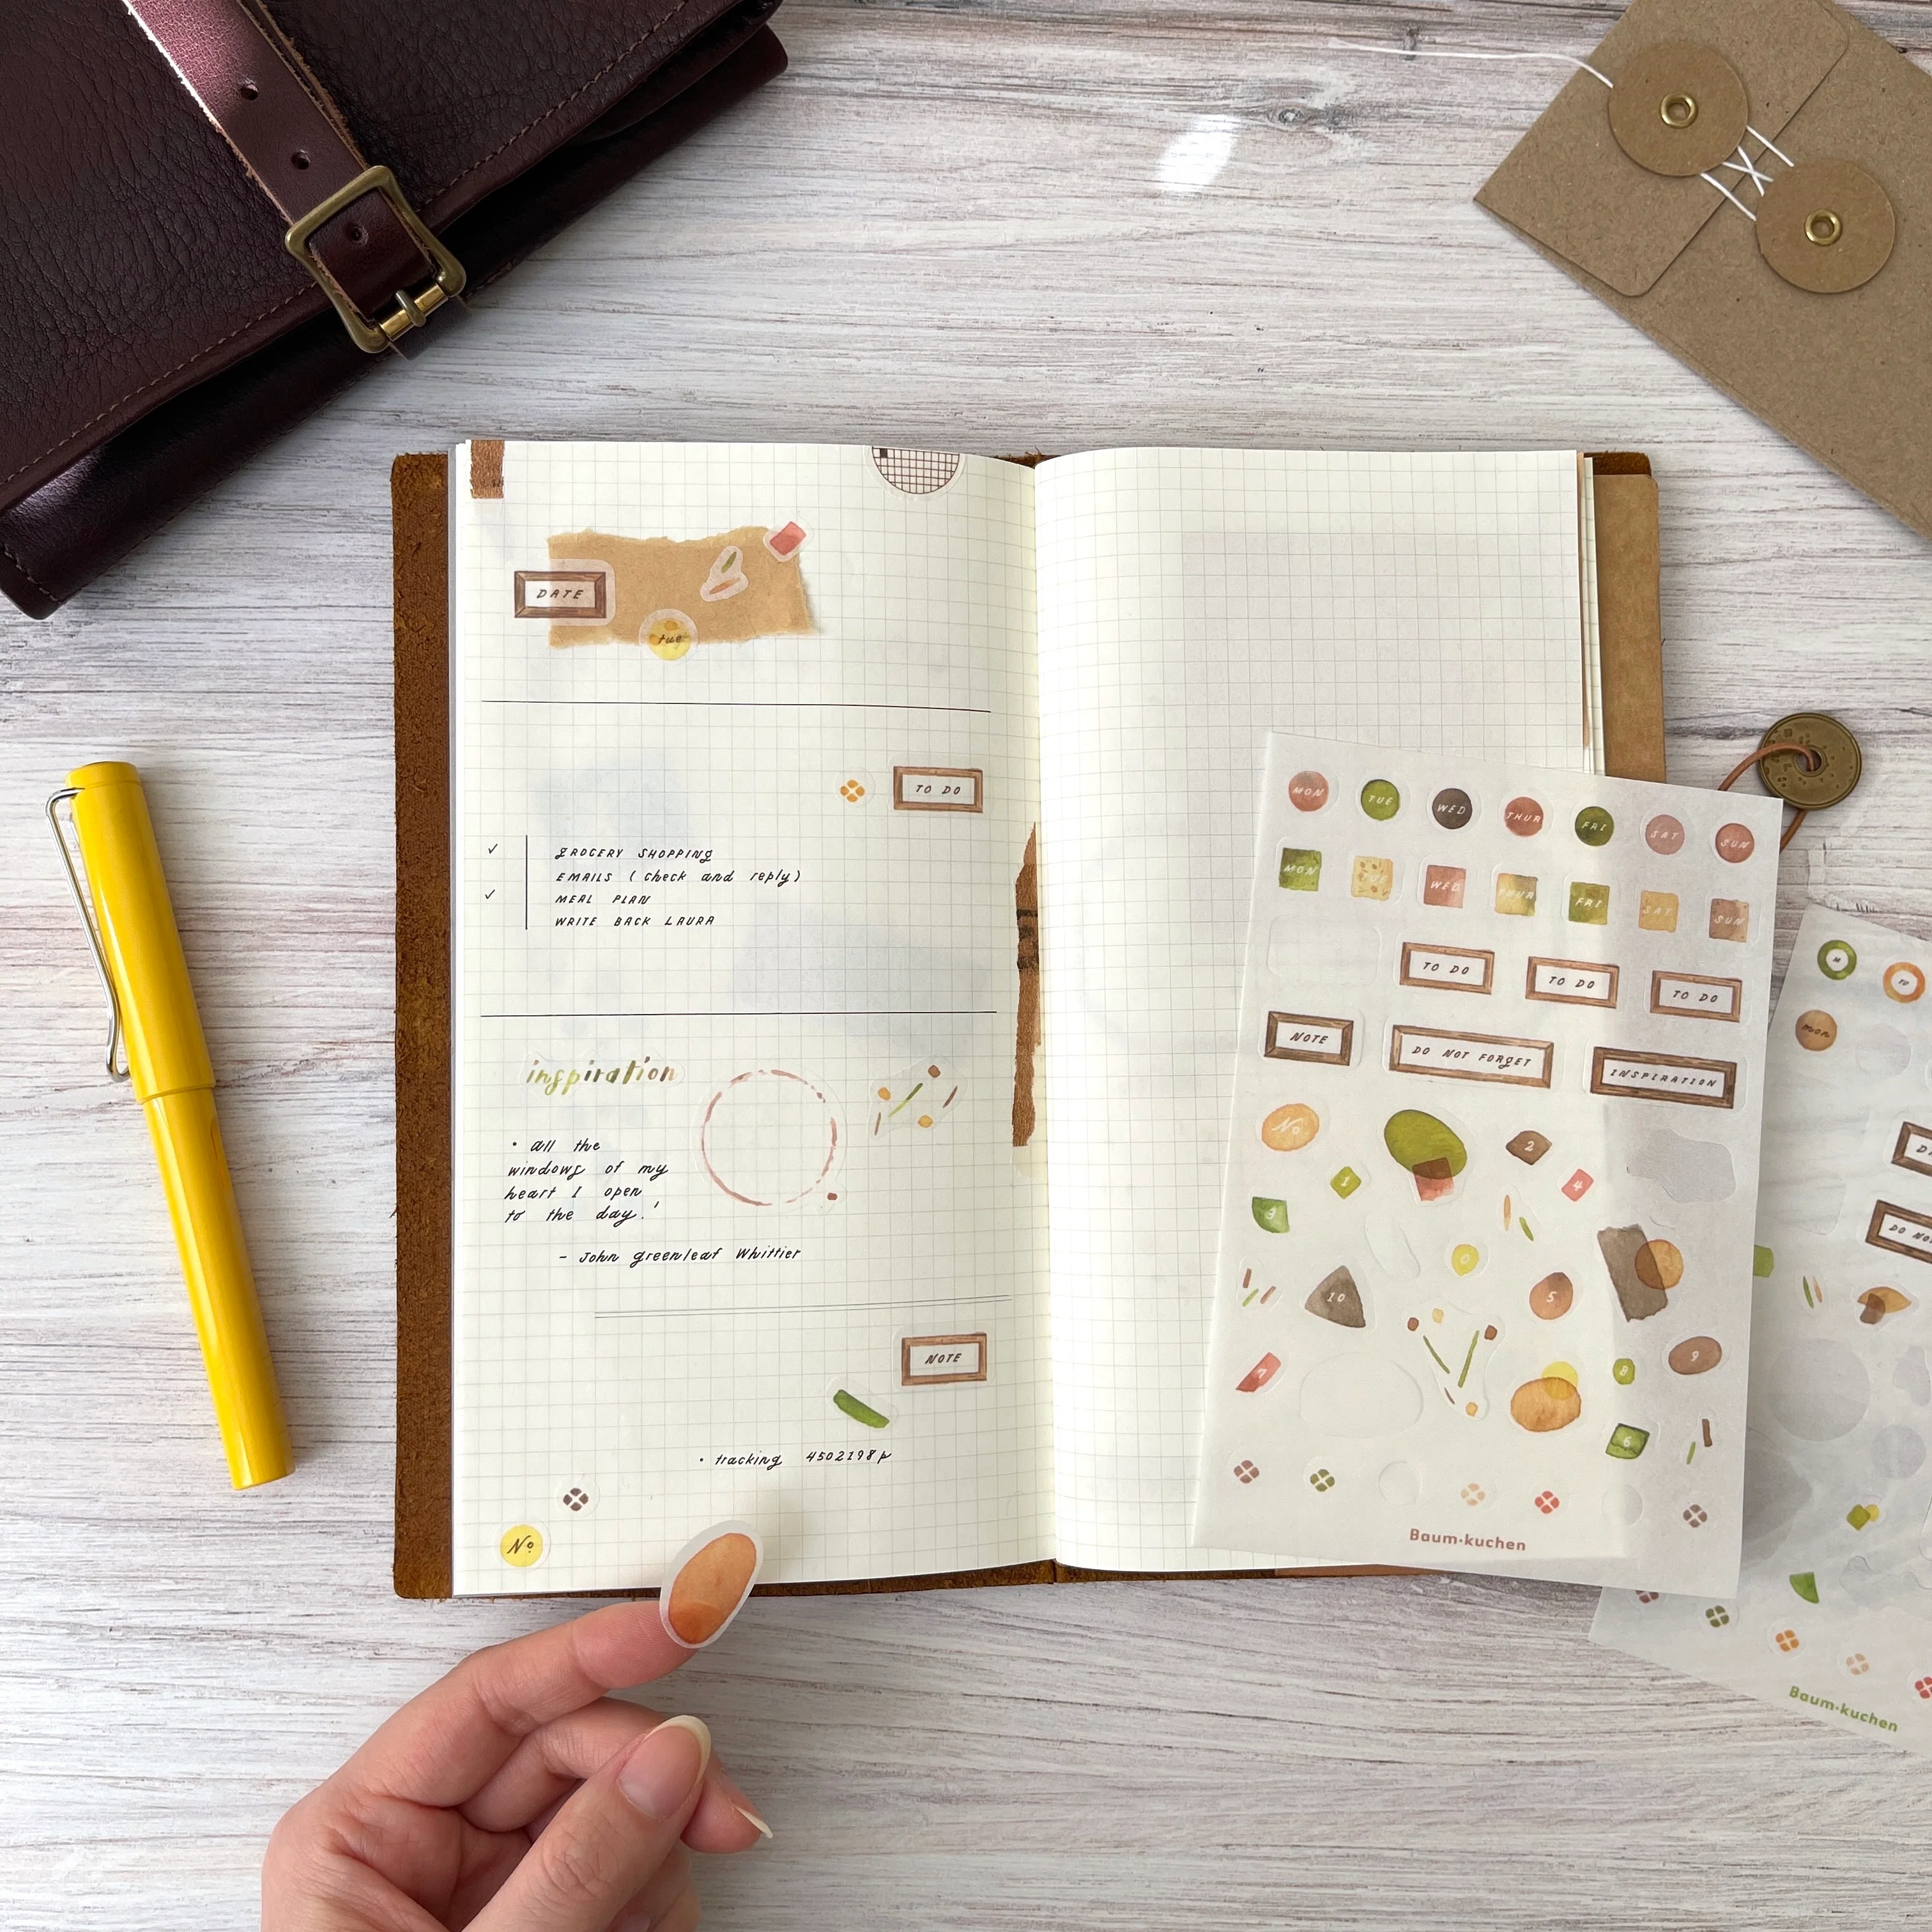 DATE
tue
TO DO
✓ GROCERY SHOPPING
EMAILS (check and reply)
✓ MEAL PLAN
WRITE BACK LAURA
inspiration
• all the
windows of my
heart I open
to the day.'
- John greenleaf Whittier
NOTE
• tracking 4502198p
Nº
MON TUE WED THUR FRI SAT SUN
MON TUE WED THUR FRI SAT SUN
TO DO TO DO TO DO
NOTE DO NOT FORGET INSPIRATION
Nº 2
1 4
3
0
10 5
7 8 9
6
Baum·kuchen
M TU
mon
DO NO
Baum·kuchen